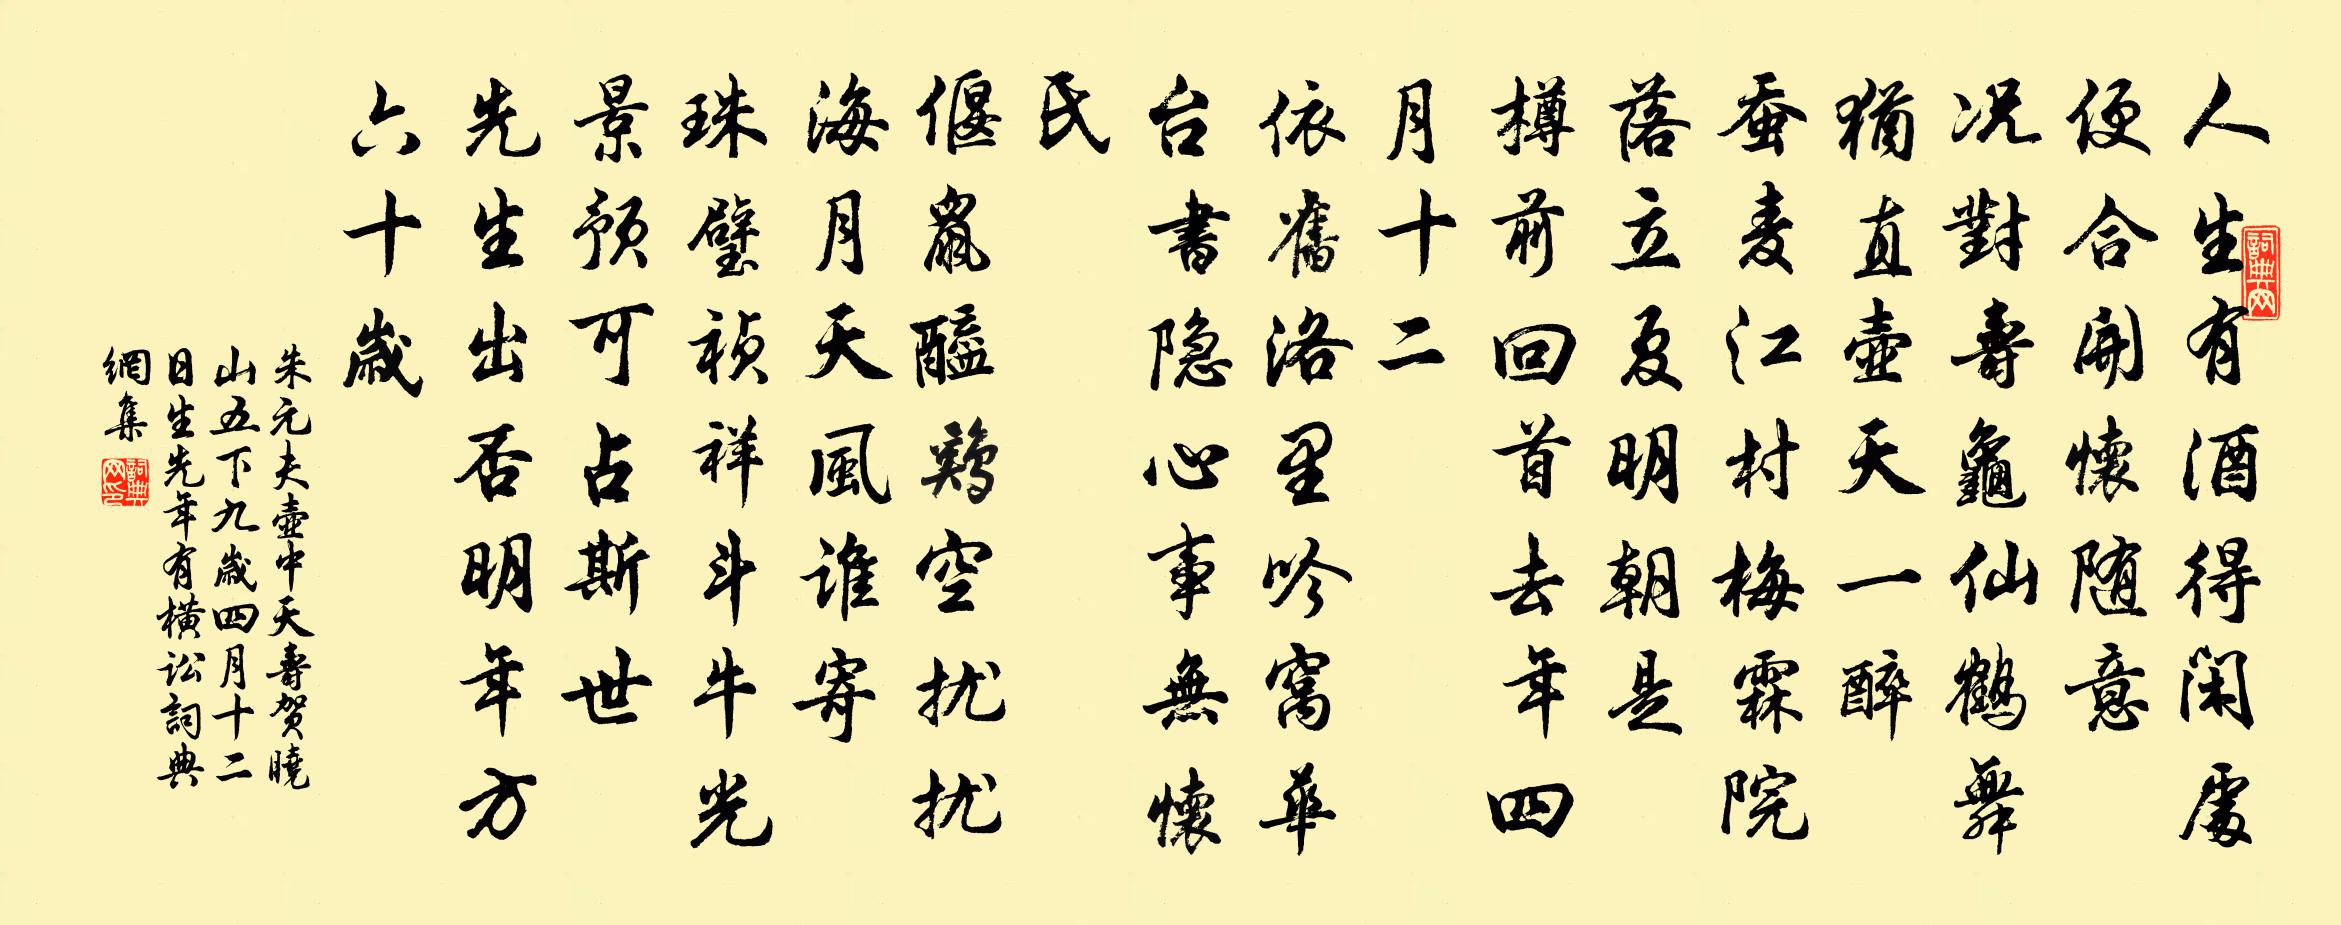 人生有酒得闲處
便合開懷随意
况對壽龜仙鶴舞
猶直壺天一醉
蚕麦江村梅霖院
落立夏明朝是
樽前回首去年四
月十二
依舊洛里吟窩華
台書隐心事無懷
氏
偃鼠醯鷄空扰扰
海月天風谁寄
珠璧祯祥斗牛光
景預可占斯世
先生出否明年方
六十歲
朱元夫壺中天壽贺曉
山五下九歲四月十二
日生先年有横讼詞典
網集
詞典网